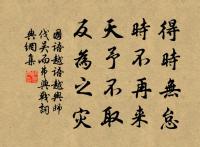 得時無怠
時不再来
天予不取
反為之灾
國語越語越興師
伐吴而弗與戰詞
典網集